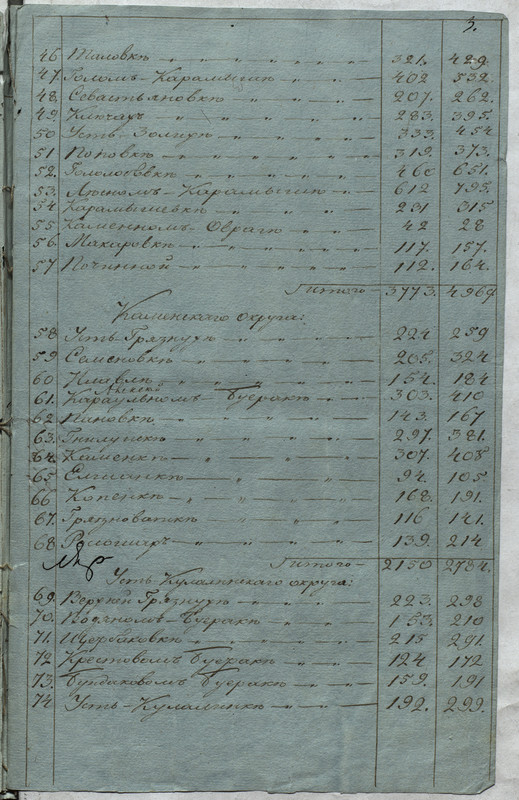 3.
46 Таловкѣ 321. 429.
47 Голомъ-Карамышѣ 402 532.
48. Севастьяновкѣ 207. 262.
49. Ключахъ 283. 395.
50 Усть-Золихѣ 333. 454
51 Поповкѣ 319. 373.
52. Гололобовкѣ 651.
53. Лѣсномъ-Карамышѣ 612 795.
54. Карамышевкѣ 231 315
55 Каменномъ Оврагѣ 42 28
56. Макаровкѣ 117. 157.
57 Починной 112. 164.
Итого 3773. 4969
Каменскаго округа:
58 Усть-Грязнухѣ 224 259
59 Семеновкѣ 205. 324
60. Иловлѣ 154. 184
61. Караульномъ Буеракѣ 303. 410
62 Пановкѣ 143. 167
63. Гнилушкѣ 297. 381.
64. Каменкѣ 307. 405
65 Елшанкѣ 94. 105
66 Копенкѣ 168. 191.
67. Грязноваткѣ 116 141.
68 Россошахъ 139. 214
Итого 2150 2784.
Усть-Кулалинскаго округа:
69. Верхней Грязнухѣ 223. 298
70. Водяномъ-Буеракѣ 153. 210
71. Щербаковкѣ 215 291.
72 Крестовомъ Буеракѣ 124 172
73. Буидаковомъ Буеракѣ 159. 191
74 Усть-Кулалинкѣ 192. 299.